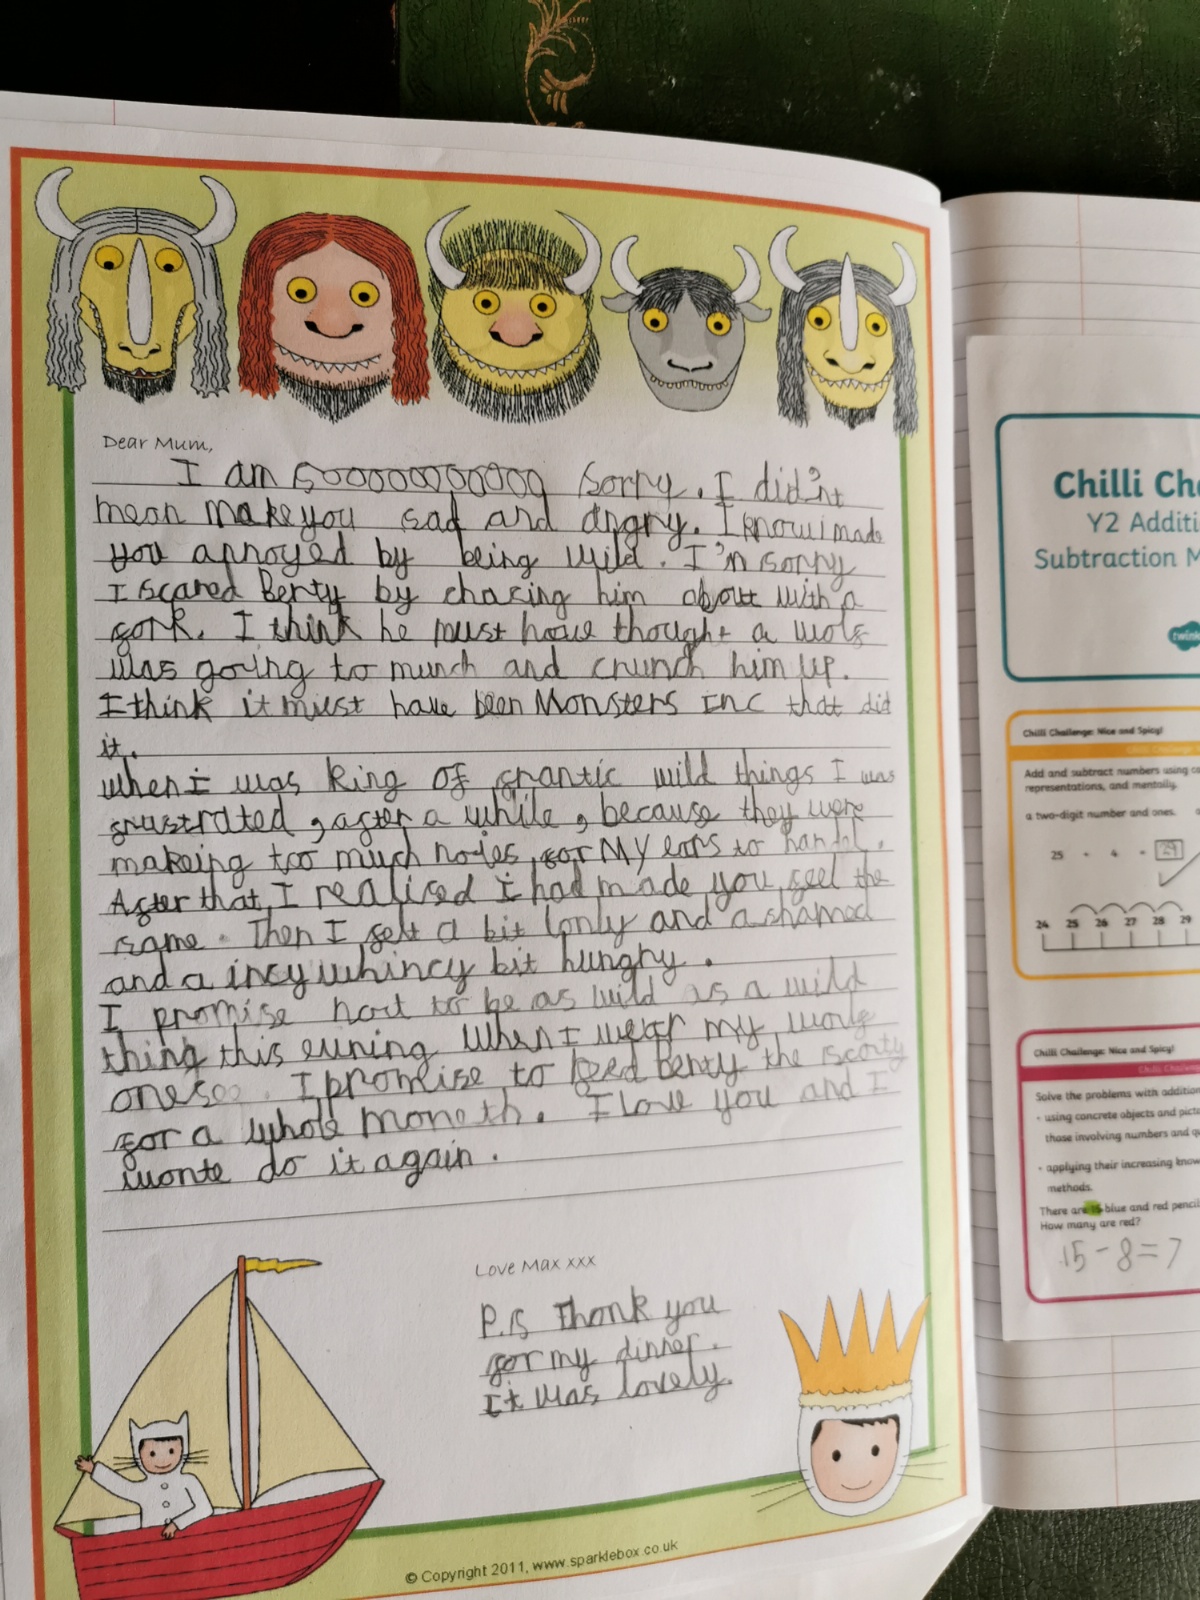 Dear Mum,
I am sooooooooooo sorry. I did'nt
mean make you sad and angry. I know i made
you annoyed by being wild. I'm sorry
I scared Berty by chasing him about with a
fork. I think he must have thought a wolf
was going to munch and crunch him up.
I think it must have been Monsters Inc that did
it.
when i was king of grantic wild things I was
frustrated, after a while, because they were
makeing too much noies for My ears to handl.
After that, I realised i had made you feel the
same. Then I felt a bit lonly and ashamed
and a incy whincy bit hungry.
I promise not to be as wild as a wild
thing this evning when I wear my
onese. I promise to feed berty the scorty
for a whole moneth. I love you and I
wonte do it again.
Love Max xxx
P.S Thank you
for my dinner.
It was lovely.
© Copyright 2011, www.sparklebox.co.uk
Chilli Ch
Y2 Additi
Subtraction M
twink
Chilli Challenge: Nice and Spicy!
Add and subtract numbers using co
representations, and mentally.
a two-digit number and ones.
25 + 4 = 29
24 25 26 27 28 29
Chilli Challenge: Nice and Spicy!
Solve the problems with addition
- using concrete objects and pict
those involving numbers and q
- applying their increasing know
methods.
There are 15 blue and red pencil
How many are red?
15 - 8 = 7